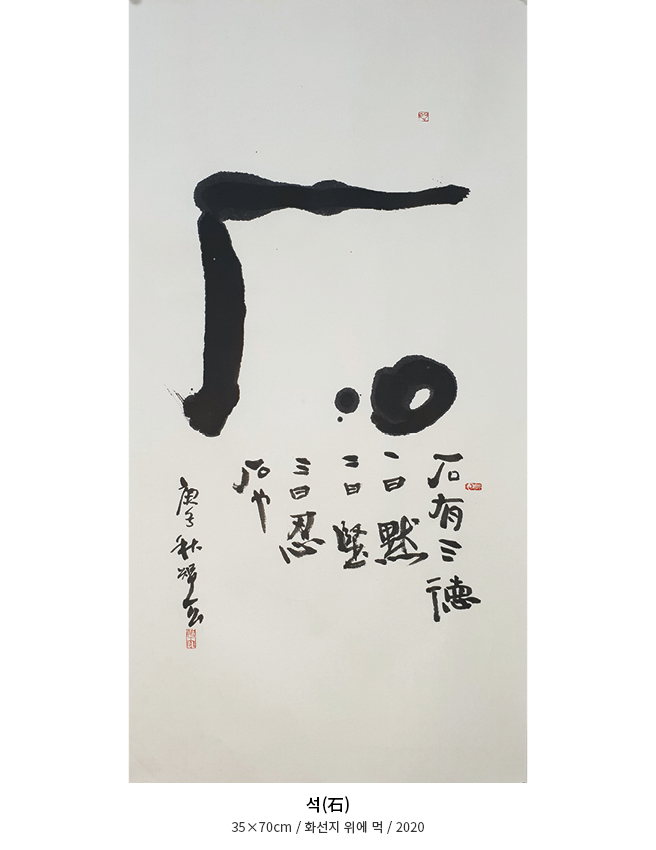 石
石有三德
一曰默
二曰堅
三曰忍
石也
庚子秋
석(石)
35×70cm / 화선지 위에 먹 / 2020